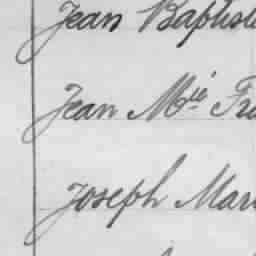 Jean Baptiste
Jean Mie Fra
Joseph Mari